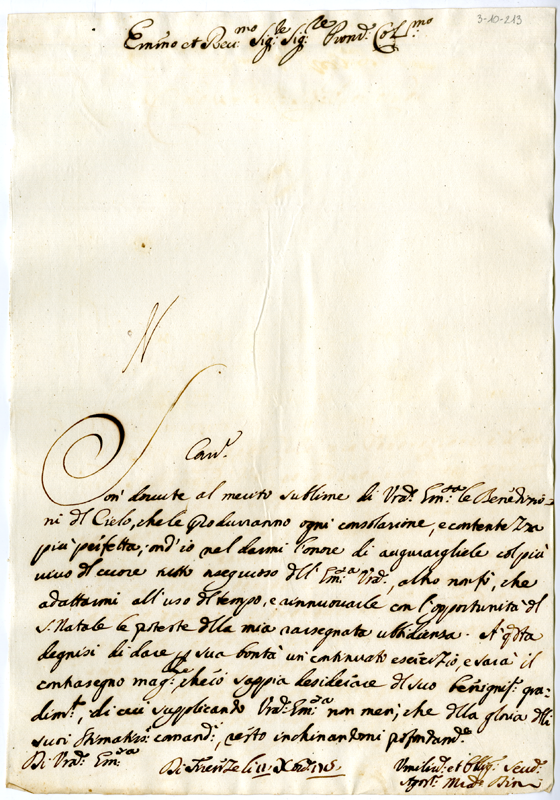 3-10-213
Emin̄o et Reu:mo Sig:re Sig:re Prōn: Col:mo
N
Car:
Son' dovute al merito sublime di Vr̄a Em:za le Benedizio=
ni del Cielo, che le produranno ogni consolazione, e contentezza
più perfetta; ond'io nel darmi l'onore di augurargliele col più
vivo del cuore tutto ossequioso dell' Em:a Vr̄a, altro non fò, che
adattarmi all'uso del tempo, e rinnuovarle con l'opportunità del
S. Natale le proteste della mia rassegnata ubbidienza. A q̄sta
degnisi di dare p sua bontà un continuato esercizio, e sarà il
contrasegno mag:re che io sappia desiderare del suo benignis:o gra-
dim:to, di cui supplicando Vr̄a Em:za non men, che della gloria delli
suoi stimatiss:i comandi, resto inchinandomi profondam:te
Di Vr̄a Em:za
Di Firenze li 11 Xbre 1715
Umiliss:o et Obblig: Serv: